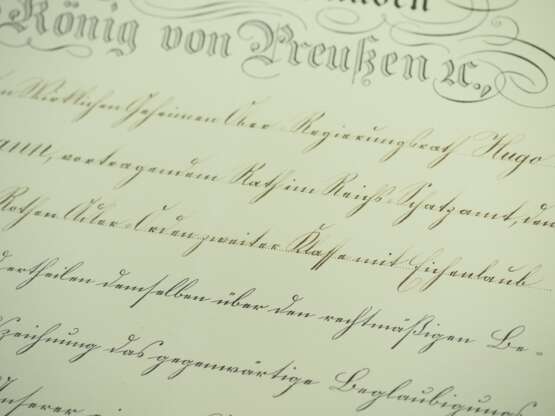 König von Preußen ꝛc.,
Wirklichen Geheimen Ober-Regierungsrath Hugo
ann, vortragendem Rath im Reichs-Schatzamt, den
Rothen Adler-Orden zweiter Klasse mit Eichenlaub
ertheilen demselben über den rechtmäßigen Be-
zeichnung das gegenwärtige Beglaubigungs
Unserer